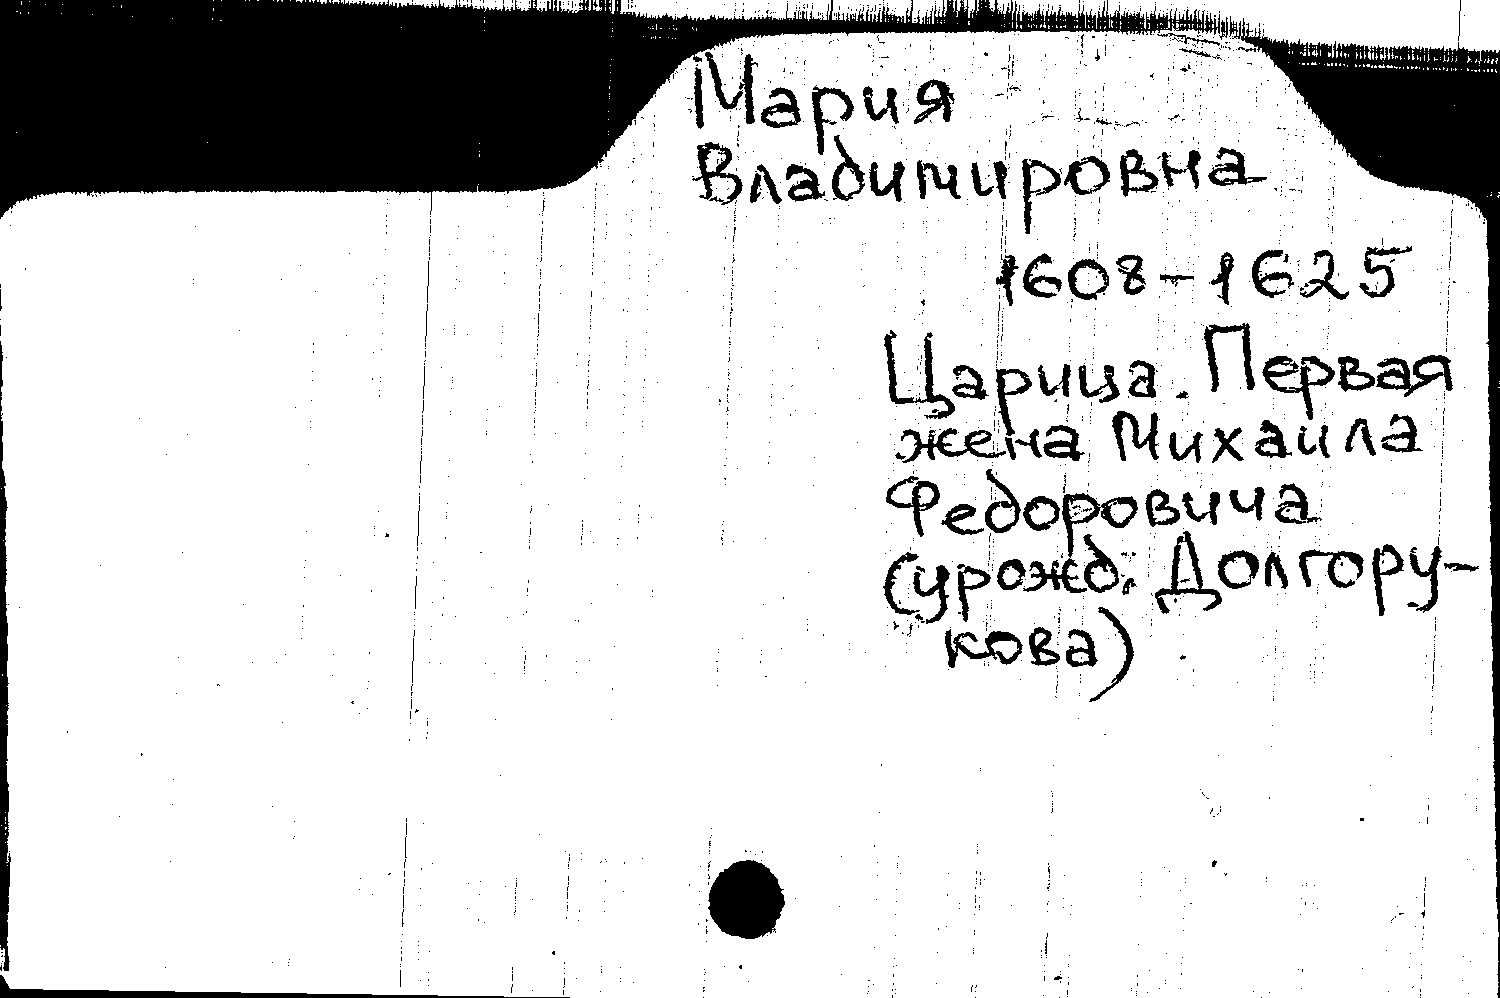 Мария
Владимировна
1608-1625
Царица. Первая
жена Михаила
Федоровича
(урожд. Долгору-
кова)